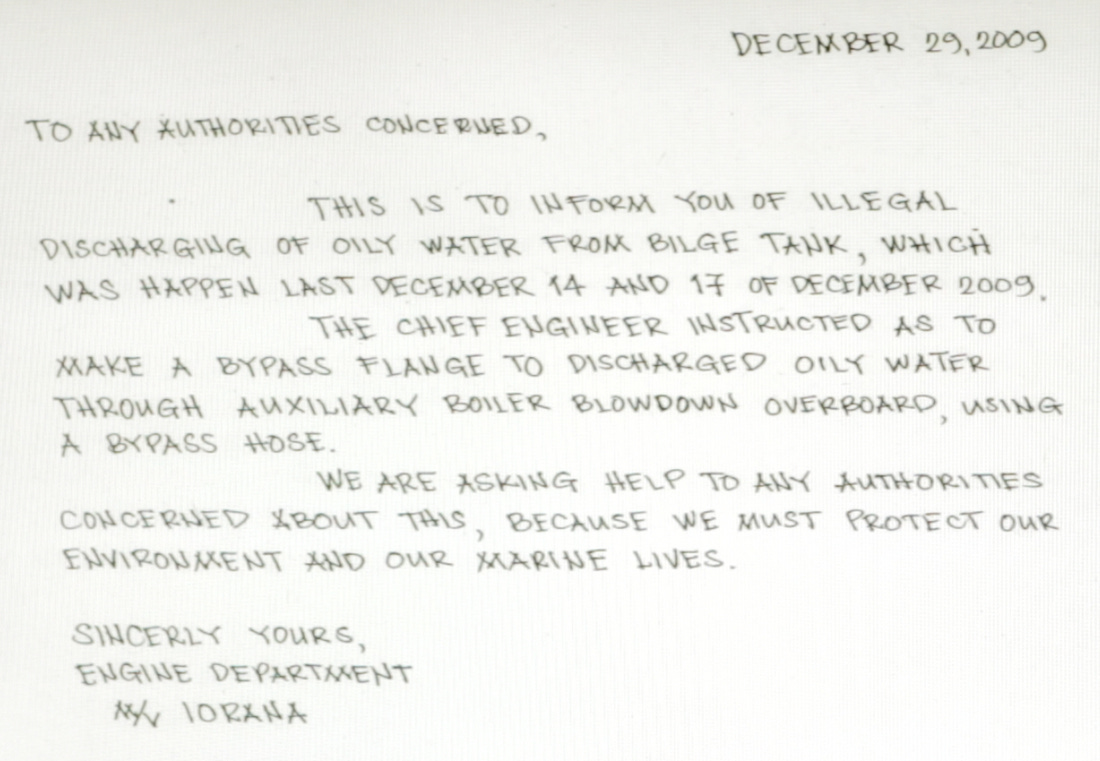 DECEMBER 29, 2009
TO ANY AUTHORITIES CONCERNED,
THIS IS TO INFORM YOU OF ILLEGAL
DISCHARGING OF OILY WATER FROM BILGE TANK, WHICH
WAS HAPPEN LAST DECEMBER 14 AND 17 OF DECEMBER 2009.
THE CHIEF ENGINEER INSTRUCTED AS TO
MAKE A BYPASS FLANGE TO DISCHARGED OILY WATER
THROUGH AUXILIARY BOILER BLOWDOWN OVERBOARD, USING
A BYPASS HOSE.
WE ARE ASKING HELP TO ANY AUTHORITIES
CONCERNED ABOUT THIS, BECAUSE WE MUST PROTECT OUR
ENVIRONMENT AND OUR MARINE LIVES.
SINCERLY YOURS,
ENGINE DEPARTMENT
M/V IORANA